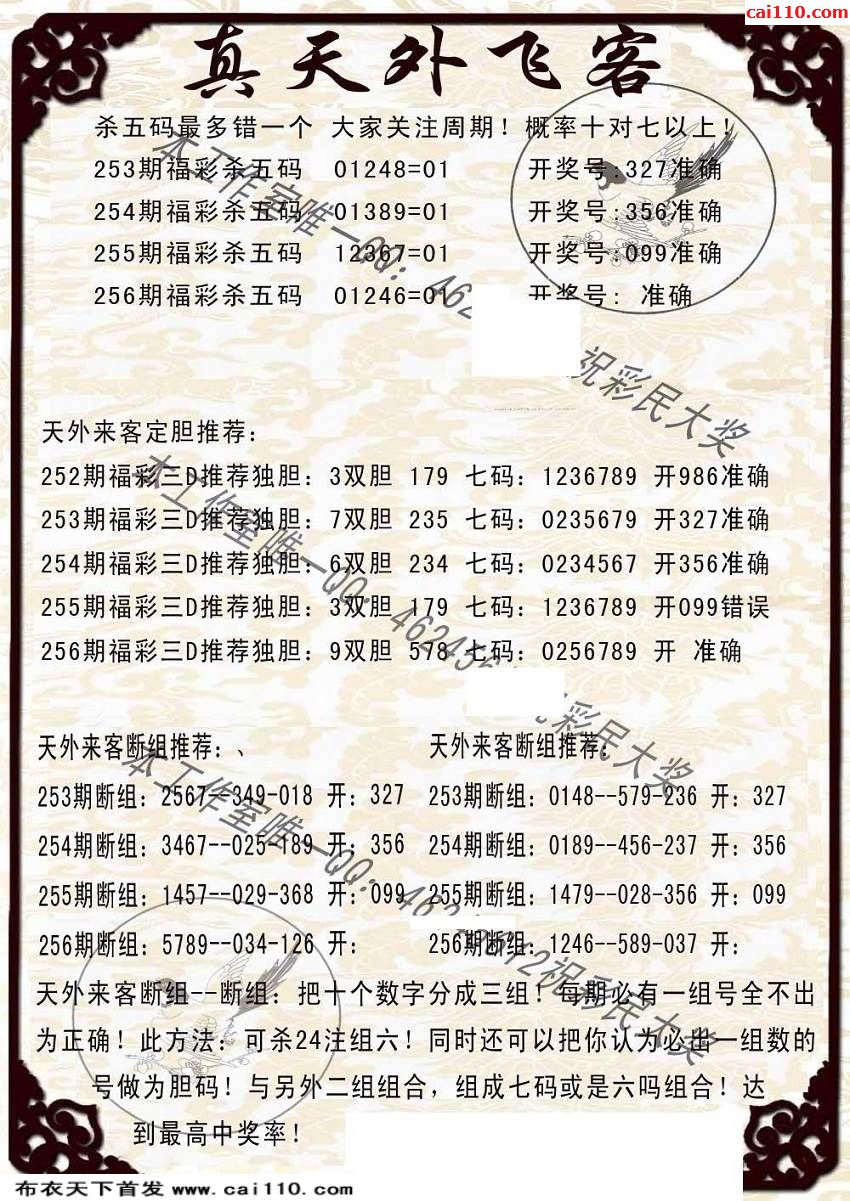 cai110.com
真天外飞客
杀五码最多错一个 大家关注周期！概率十对七以上！
253期福彩杀五码 01248=01 开奖号:327准确
254期福彩杀五码 01389=01 开奖号:356准确
255期福彩杀五码 12367=01 开奖号:099准确
256期福彩杀五码 01246=01 开奖号: 准确
天外来客定胆推荐：
252期福彩三D推荐独胆：3双胆 179 七码：1236789 开986准确
253期福彩三D推荐独胆：7双胆 235 七码：0235679 开327准确
254期福彩三D推荐独胆：6双胆 234 七码：0234567 开356准确
255期福彩三D推荐独胆：3双胆 179 七码：1236789 开099错误
256期福彩三D推荐独胆：9双胆 578 七码：0256789 开 准确
天外来客断组推荐：、
253期断组：2567--349-018 开：327
254期断组：3467--025-189 开：356
255期断组：1457--029-368 开：099
256期断组：5789--034-126 开：
天外来客断组推荐：
253期断组：0148--579-236 开：327
254期断组：0189--456-237 开：356
255期断组：1479--028-356 开：099
256期断组：1246--589-037 开：
天外来客断组--断组：把十个数字分成三组！每期必有一组号全不出
为正确！此方法：可杀24注组六！同时还可以把你认为必出一组数的
号做为胆码！与另外二组组合，组成七码或是六吗组合！达
到最高中奖率！
本工作室唯一QQ：462 祝彩民大奖
本工作室唯一QQ：462456 彩民大奖
本工作室唯一QQ：462 612祝彩民大奖
布衣天下首发 www.cai110.com